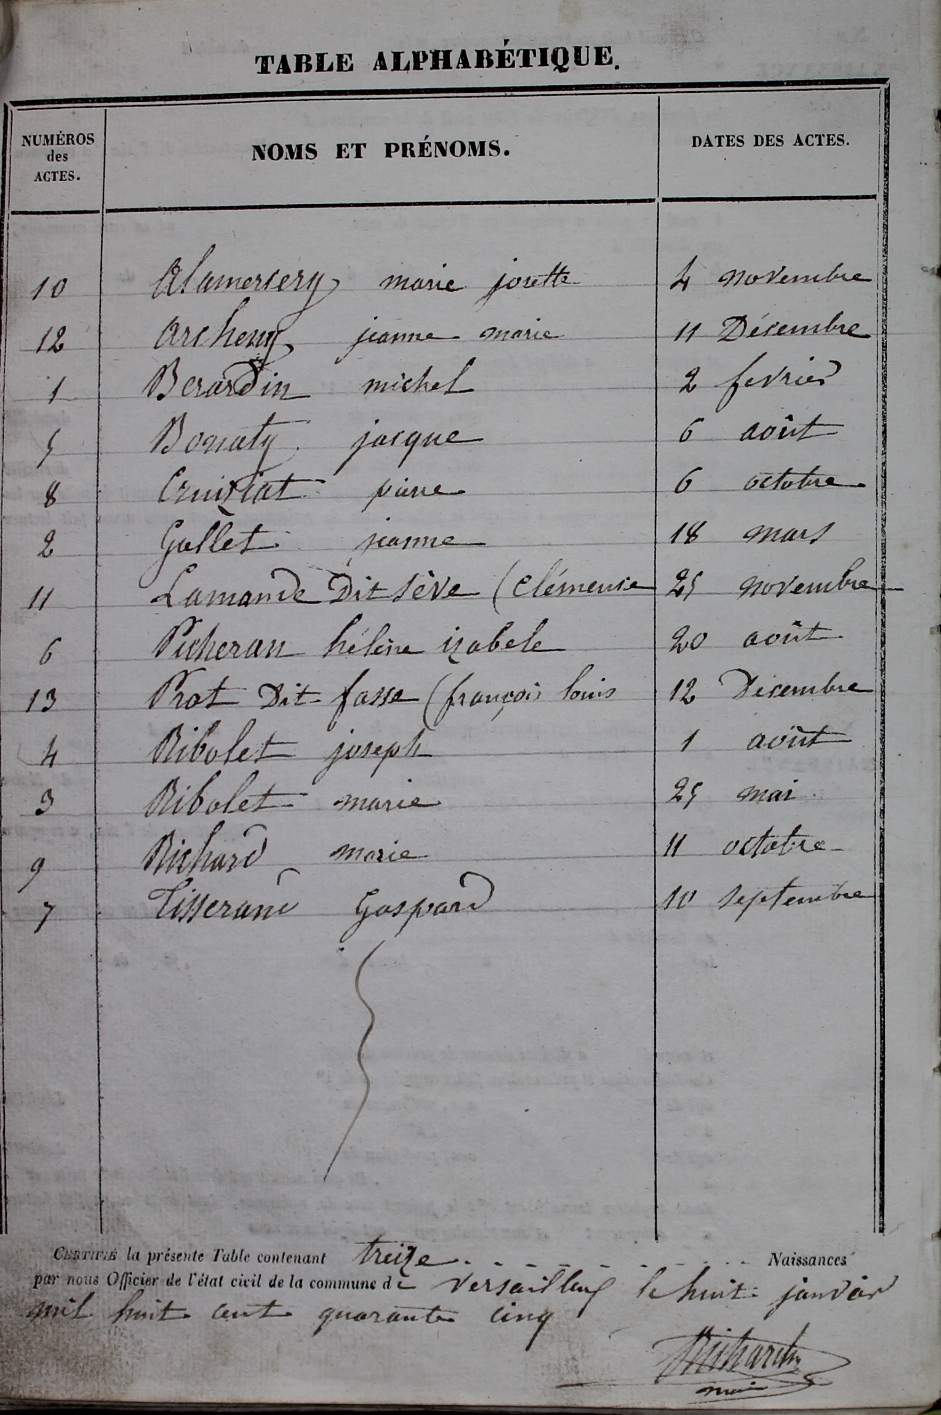 TABLE ALPHABÉTIQUE.
NUMÉROS des ACTES. NOMS ET PRÉNOMS. DATES DES ACTES.
10 Alamercery marie josette 4 novembre
12 Archeny jeanne marie 11 Décembre
1 Berardin michel 2 fevrier
5 Bonaty jacque 6 août
8 Cruiziat pierre 6 octobre
2 Gallet jeanne 18 mars
11 Lamande Dit sève (Clémence 25 novembre
6 Picheran hélène izabele 20 août
13 Prat Dit fasse (françois louis 12 Décembre
4 Ribolet joseph 1 août
3 Ribolet marie 25 mai
9 Richard marie 11 octobre
7 Tisserand Gaspard 10 septembre
CERTIFIÉ la présente Table contenant treize Naissances
par nous Officier de l'état civil de la commune de versailleux le huit janvier
mil huit cent quarante cinq
Richard